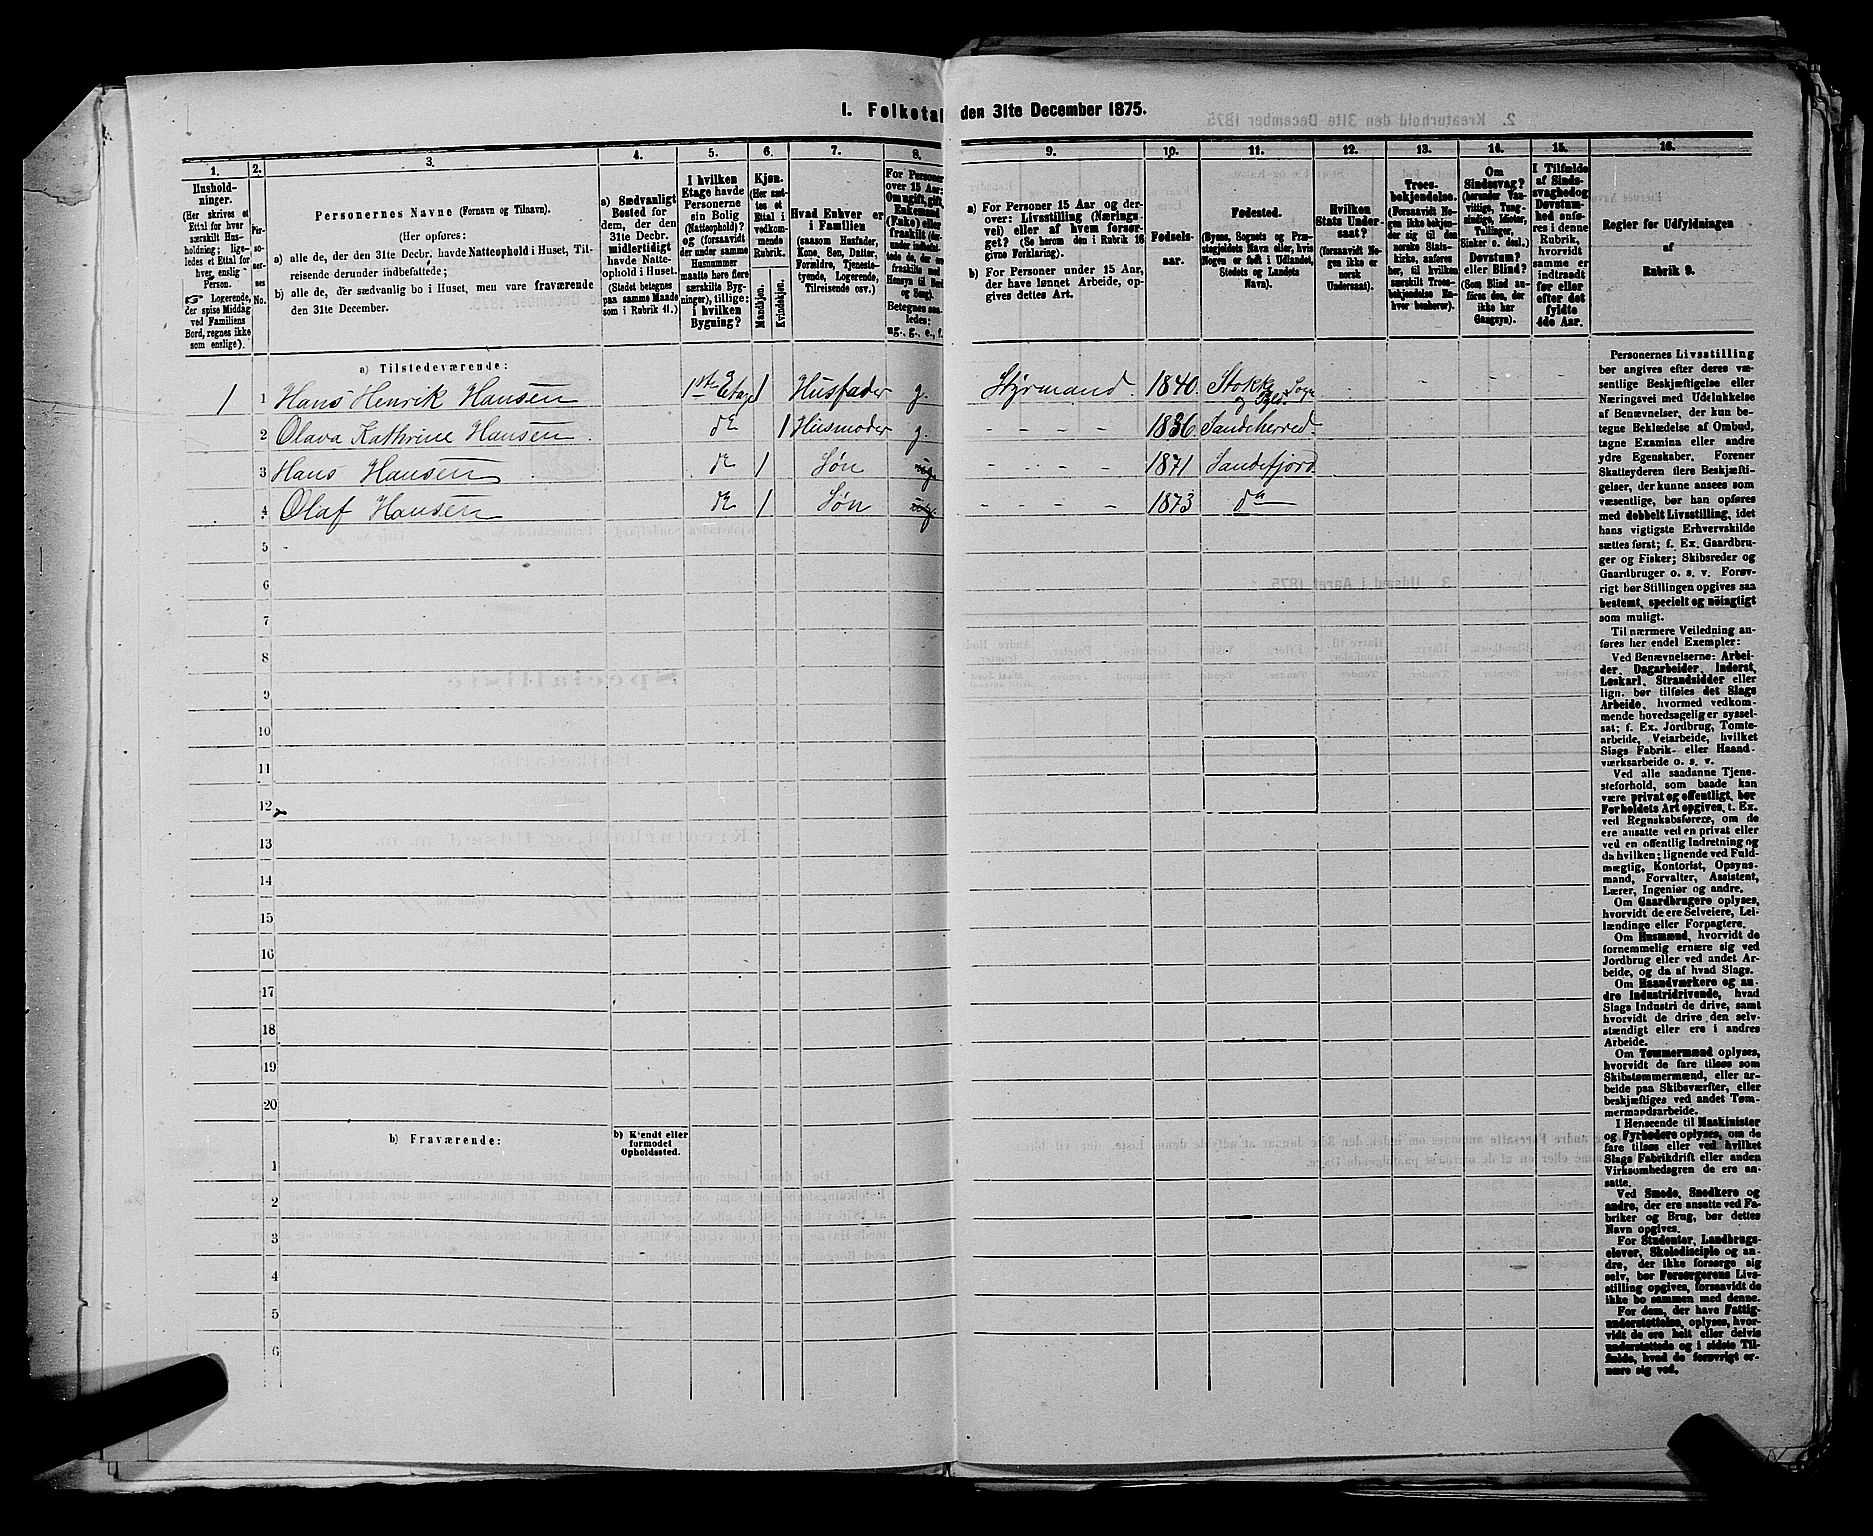 1. Folketal den 31te December 1875.
1. 2. 3. 4. 5. 6. 7. 8. 9. 10. 11. 12. 13. 14. 15. 16.
Hushold-
ninger.
(Her skrives et
Ettal for hver
særskilt Hus-
holdning; lige-
ledes et Ettal for
hver enslig
Person.
☞ Logerende,
der spise Middag
ved Familiens
Bord, regnes ikke
som enslige).
Per-
so-
ner-
nes
No.
Personernes Navne (Fornavn og Tilnavn).
(Her opføres:
a) alle de, der den 31te Decbr. havde Natteophold i Huset, Til-
reisende derunder indbefattede;
b) alle de, der sædvanlig bo i Huset, men vare fraværende
den 31te December.
a) Sædvanligt
Bosted for
dem, der den
31te Decbr.
midlertidigt
havde Natte-
ophold i Huset.
(Stedet betegnes
paa samme Maade
som i Rubrik 11.)
I hvilken
Etage havde
Personerne
sin Bolig
(Natteophold)?
og (forsaavidt
der under samme
Husnummer
maatte høre flere
særskilte Byg-
ninger), tillige:
i hvilken
Bygning?
Kjøn.
(Her sæt-
tes et
Ettal i
vedkom-
mende
Rubrik.
Mandkjøn.
Kvindekjøn.
Hvad Enhver er
i Familien
(saasom Husfader,
Kone, Søn, Datter,
Forældre, Tjeneste-
tyende, Logerende,
Tilreisende osv.)
For Personer
over 15 Aar:
Om ugift, gift,
Enkemand
(Enke) eller
fraskilt
Betegnes saa-
ledes:
ug., g., e., f.
a) For Personer 15 Aar og der-
over: Livsstilling (Nærings-
vei) eller af hvem forsør-
get? (Se herom den i Rubrik 16
givne Forklaring).
b) For Personer under 15 Aar,
der have lønnet Arbeide, op-
gives dettes Art.
Fødsels-
aar.
Fødested.
(Byens, Sognets og Præ-
stegjeldets Navn eller, hvis
Nogen er født i Udlandet,
Stedets og Landets
Navn).
Hvilken
Stats Under-
saat?
(forsaavidt No-
gen ikke er
norsk
Undersaat).
Troes-
bekjendelse.
(Forsaavidt No-
gen ikke bekjen-
der sig til den
norske Stats-
kirke, anføres
her, til hvilken
særskilt Troes-
bekjendelse En-
hver henhører).
Om
Sindssvag?
(herunder Van-
vittige, Tung-
sindige, Idioter,
Tullinger,
Sinker o. desl.)
Døvstum?
eller Blind?
(Som Blind an-
føres den, der
ikke har
Gangsyn).
I Tilfælde
af Sinds-
svaghed og
Døvstum-
hed anfø-
res i denne
Rubrik,
hvorvidt
samme er
indtraadt
før eller
efter det
fyldte
4de Aar.
Regler for Udfyldningen
af
Rubrik 9.
a) Tilstedeværende:
1 1 Hans Henrik Hansen 1ste Etage 1 Husfader g. Styrmand 1840. Stokke Sogn
og
2 Olava Kathrine Hansen do 1 Husmoder g. 1836. Sandeherred
3 Hans Hansen do 1 Søn ug. 1871 Sandefjord
4 Olaf Hansen do 1 Søn ug. 1873 do
5
6
7
8
9
10
11
12
13
14
15
16
17
18
19
20
b) Fraværende:
b) Kjendt eller
formodet
Opholdssted.
1
2
3
4
5
6
Personernes Livsstilling
bør angives efter deres væ-
sentlige Beskjæftigelse eller
Næringsvei med Udelukkelse
af Benævnelser, der kun be-
tegne Beklædelse af Ombud,
tagne Examina eller andre
ydre Egenskaber. Forener
Skatteyderen flere Beskjæfti-
gelser, der kunne ansees som
væsentlige, bør han opføres
med dobbelt Livsstilling, idet
hans vigtigste Erhvervskilde
sættes først; f. Ex. Gaardbru-
ger og Fisker; Skibsreder og
Gaardbruger o. s. v. Forøv-
rigt bør Stillingen opgives saa
bestemt, specielt og nöiagtigt
som muligt.
Til nærmere Veiledning an-
føres her endel Exempler:
Ved Benævnelserne: Arbei-
der, Dagarbeider, Inderst,
Løskarl, Strandsidder eller
lign. bør tilføies det Slags
Arbeide, hvormed vedkom-
mende hovedsagelig er syssel-
sat; f. Ex. Jordbrug, Tomte-
arbeide, Veiarbeide, hvilket
Slags Fabrik- eller Haand-
værksarbeide o. s. v.
Ved alle saadanne Tjene-
steforhold, som baade kan
være privat og offentligt, bør
Forholdets Art opgives, t. Ex.
ved Regnskabsførere, om de
ere ansatte ved en privat eller
ved en offentlig Indretning og
da hvilken; lignende ved Fuld-
mægtig, Kontorist, Opsyns-
mand, Forvalter, Assistent,
Lærer, Ingeniør og andre.
Om Gaardbrugere oplyses,
hvorvidt de ere Selveiere, Lei-
lændinge eller Forpagtere.
Om Husmænd, hvorvidt de
fornemmelig ernære sig ved
Jordbrug eller ved andet Ar-
beide, og da af hvad Slags.
Om Haandværkere og an-
dre Industridrivende, hvad
Slags Industri de drive, samt
hvorvidt de drive den selv-
stændigt eller ere i andres
Arbeide.
Om Tømmermænd oplyses,
hvorvidt de fare tilsøs som
Skibstømmermænd, eller ar-
beide paa Skibsværfter, eller
beskjæftiges ved andet Tøm-
mermandsarbeide.
I Henseende til Maskinister
og Fyrbødere oplyses, om de
fare tilsøs eller ved hvilket
Slags Fabrikdrift eller anden
Virksomhedsgren de ere an-
satte.
Ved Smede, Snedkere og
andre, der ere ansatte ved Fa-
briker og Brug, bør dettes
Navn opgives.
For Studenter, Landbrugs-
elever, Skoledisciple og an-
dre, der ikke forsørge sig
selv, bør Forsørgerens Livs-
stilling opgives, forsaavidt de
ikke bo sammen med denne.
For dem, der have Fattig-
understøttelse, oplyses, hvor-
vidt de ere helt eller delvis
understøttede og i sidste Til-
fælde, hvad de forøvrigt er-
nære sig ved.